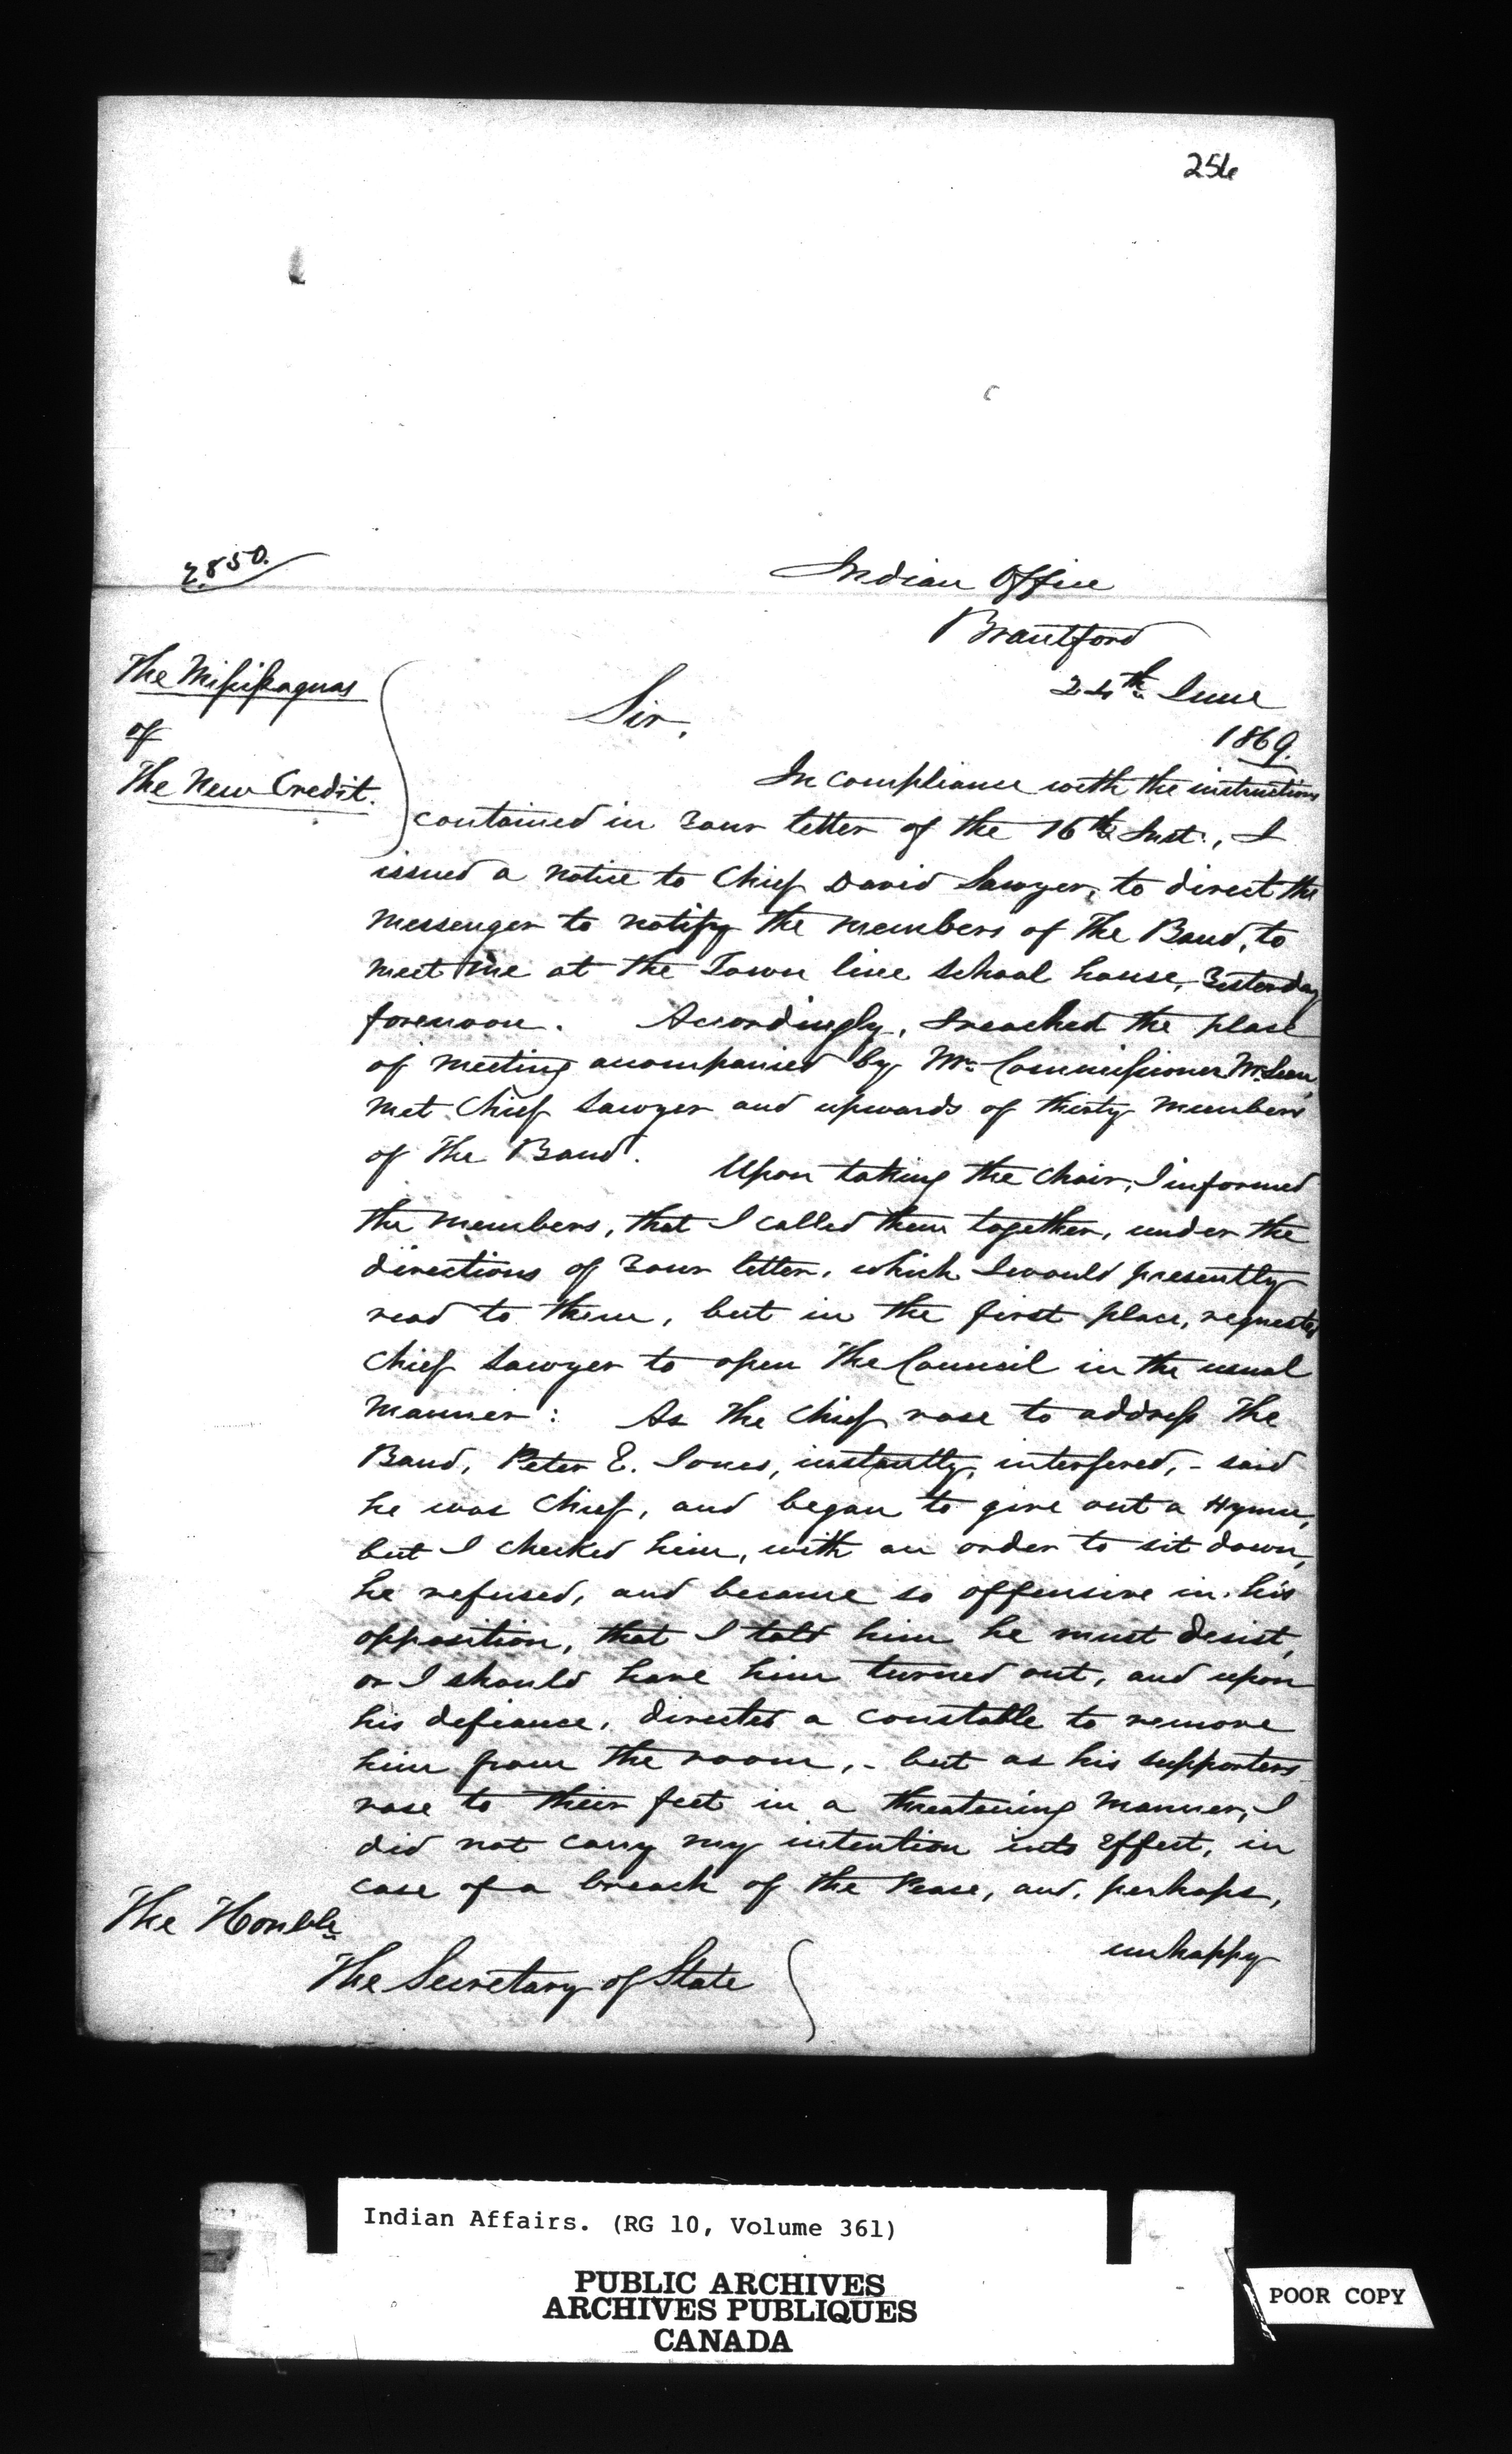 256
2850.
Indian Office
Brantford
24th June
1869.
The Missisaguas
of
The New Credit.
Sir,
In compliance with the instructions
contained in Your letter of the 16th Inst., I
issued a notice to Chief David Sawyer, to direct the
messenger to notify the members of The Band, to
meet me at the Town line school house, Yesterday
forenoon. Accordingly, I reached the place
of meeting accompanied by Mr. Commissioner
met Chief Sawyer and upwards of thirty members
of The Band. Upon taking the Chair, I informed
the members, that I called them together, under the
directions of Your letter, which I would presently
read to them, but in the first place, requested
Chief Sawyer to open The Council in the usual
manner: As The Chief rose to address The
Band, Peter E. Jones, instantly, interfered, - said
he was Chief, and began to give out a Hymn,
but I checked him, with an order to sit down,
he refused, and became so offensive in his
opposition, that I told him he must desist,
or I should have him turned out, and upon
his defiance, directed a constable to remove
him from the room, - but as his supporters
rose to their feet in a threatening manner, I
did not carry my intention into Effect, in
case of a breach of the Peace, and, perhaps,
unhappy
The Honble
The Secretary of State
Indian Affairs. (RG 10, Volume 361)
PUBLIC ARCHIVES
ARCHIVES PUBLIQUES
CANADA
POOR COPY